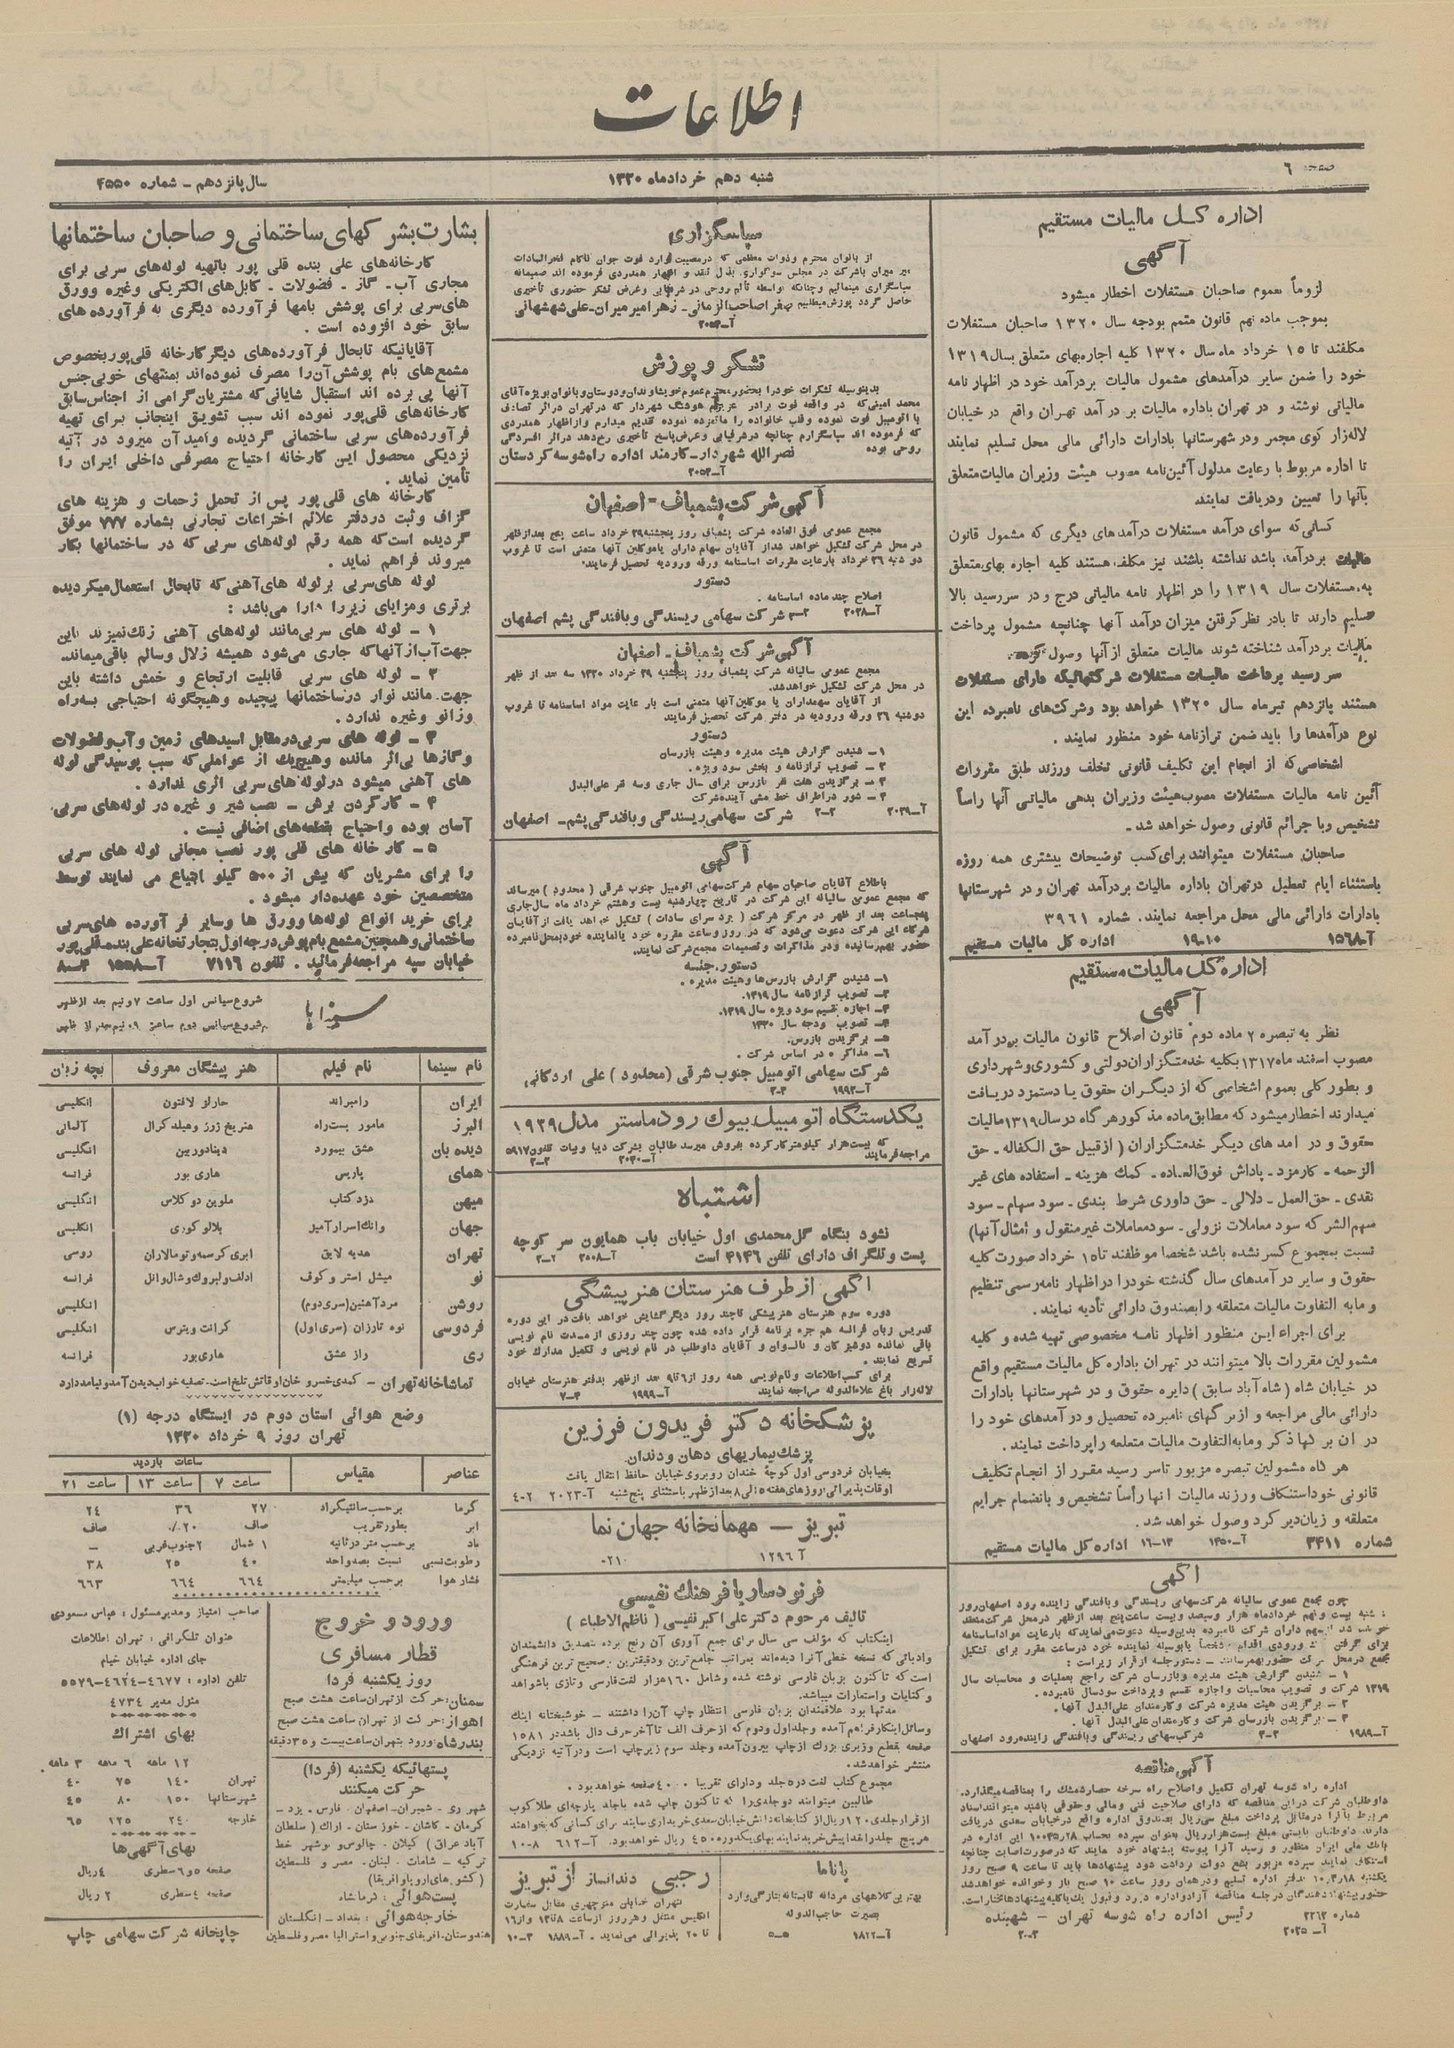 اطلاعات
صفحه ٦
شنبه دهم خردادماه ۱۳۲۰
سال پانزدهم - شماره ۴۵۵۰
اداره کل مالیات مستقیم
آگهی
لزوماً بعموم صاحبان مستغلات اخطار میشود
بموجب ماده نهم قانون متمم بودجه سال ۱۳۲۰ صاحبان مستغلات
مکلفند تا ۱۵ خرداد ماه سال ۱۳۲۰ کلیه اجاره‌بهای متعلق بسال ۱۳۱۹
خود را ضمن سایر درآمدهای مشمول مالیات بردرآمد خود در اظهار نامه
مالیاتی نوشته و در تهران باداره مالیات بر درآمد تهران واقع در خیابان
لاله‌زار کوی مجمر ودر شهرستانها بادارات دارائی مالی محل تسلیم نمایند
تا اداره مربوط با رعایت مدلول آئین‌نامه مصوب هیئت وزیران مالیات‌متعلق
بآنها را تعیین ودریافت نمایند
کسانی که سوای درآمد مستغلات درآمدهای دیگری که مشمول قانون
مالیات بردرآمد باشد نداشته باشند نیز مکلف هستند کلیه اجاره بهای‌متعلق
به مستغلات سال ۱۳۱۹ را در اظهار نامه مالیاتی درج و در سررسید بالا
تسلیم دارند تا بادر نظر گرفتن میزان درآمد آنها چنانچه مشمول پرداخت
مالیات بردرآمد شناخته شوند مالیات متعلق از آنها وصول گردد.
سر رسید پرداخت مالیات مستغلات شرکتهائیکه دارای مستغلات
هستند پانزدهم تیرماه سال ۱۳۲۰ خواهد بود وشرکت‌های نامبرده این
نوع درآمدها را باید ضمن ترازنامه خود منظور نمایند .
اشخاصی‌که از انجام این تکلیف قانونی تخلف ورزند طبق مقررات
آئین نامه مالیات مستغلات مصوب‌هیئت وزیران بدهی مالیاتی آنها رأساً
تشخیص وبا جرائم قانونی وصول خواهد شد .
صاحبان مستغلات میتوانند برای‌کسب توضیحات بیشتری همه روزه
باستثناء ایام تعطیل درتهران باداره مالیات بردرآمد تهران و در شهرستانها
بادارات دارائی مالی محل مراجعه نمایند. شماره ۳۹٦۱
آ-۱۵٦۸ ۱۰-۱۹ اداره کل مالیات مستقیم
اداره کل مالیات مستقیم
آگهی
نظر به تبصره ۲ ماده دوم قانون اصلاح قانون مالیات بردرآمد
مصوب اسفند ماه ۱۳۱۷ بکلیه خدمتگزاران دولتی و کشوری وشهرداری
و بطور کلی بعموم اشخاصی که از دیگران حقوق یا دستمزد دریافت
میدارند اخطار میشود که مطابق ماده مذکور هرگاه در سال ۱۳۱۹ مالیات
حقوق و در آمد های دیگر خدمتگزاران (ازقبیل حق الکفاله - حق
الزحمه - کارمزد - پاداش فوق‌العاده - کمک هزینه - استفاده های غیر
نقدی - حق‌العمل - دلالی - حق داوری شرط بندی - سود سهام - سود
سهم‌الشرکه سود معاملات نزولی - سود معاملات غیر منقول و امثال آنها)
نسبت بمجموع کسر نشده باشد شخصا موظفند تا ۱۵ خرداد صورت کلیه
حقوق و سایر درآمدهای سال گذشته خودرا در اظهار نامه رسمی تنظیم
و مابه التفاوت مالیات متعلقه را بصندوق دارائی تأدیه نمایند.
برای اجراء این منظور اظهار نامه مخصوصی تهیه شده و کلیه
مشمولین مقررات بالا میتوانند در تهران باداره کل مالیات مستقیم واقع
در خیابان شاه (شاه آباد سابق) دایره حقوق و در شهرستانها بادارات
دارائی مالی مراجعه و از برگهای نامبرده تحصیل و درآمدهای خود را
در آن برگها ذکر ومابه‌التفاوت مالیات متعلقه راپرداخت نمایند.
هر گاه مشمولین تبصره مزبور تاسر رسید مقرر از انجام تکلیف
قانونی خود استنکاف ورزند مالیات آنها رأساً تشخیص و بانضمام جرایم
متعلقه و زیان دیر کرد وصول خواهد شد .
شماره ۳۴۱۱ آ-۱۴۵۰ ۱۳-۱٦ اداره کل مالیات مستقیم
آگهی
چون مجمع عمومی سالیانه شرکت‌سهامی ریسندگی و بافندگی زاینده رود اصفهان‌روز
۱ - شنیدن گزارش هیئت مدیره وبازرسان شرکت راجع بعملیات و محاسبات سال
۱۳۱۹ شرکت و تصویب محاسبات واجازه تقسیم وپرداخت سود سال نامبرده .
۲ - برگزیدن هیئت مدیره شرکت وکارمندان علی‌البدل آنها .
۳ - برگزیدن بازرسان شرکت و کارمندان علی‌البدل آنها .
آ-۱۹۸۹ ۲-۲ شرکت‌سهامی ریسندگی وبافندگی زاینده‌رود اصفهان
آگهی مناقصه
اداره راه شوسه تهران تکمیل واصلاح راه سرخه حصار شمشک را بمناقصه میگذارد.
حضور پیشنهاد دهندگان درجلسه مناقصه آزاد و اداره در رد وقبول یک یاکلیه پیشنهادها مختار است.
شماره ۲۲٦۲ رئیس اداره راه شوسه تهران - شهبنده
آ- ۲۰۳۵ ۲-۲
سپاسگزاری
از بانوان محترم وذوات معظمی که درمصیبت وارد فوت جوان ناکام فخرالسادات
میر میران باشرکت در مجلس سوگواری بذل تفقد و اظهار همدردی فرموده اند صمیمانه
سپاسگزاری مینمائیم وچنانکه بواسطه تألم روحی در شرفیابی وعرض تشکر حضوری تأخیری
حاصل گردد پوزش میطلبیم صغرا صاحب الزمانی - زهرا میر میران - علی شهشهانی
آ-۲۰۵۳
تشکر و پوزش
بدینوسیله تشکرات خودرا بحضور محترم عموم خویشاوندان ودوستان وبانوان بویژه آقای
محمد امینی که در واقعه فوت برادر عزیزم هوشنگ شهردار که درتهران دراثر تصادف
با اتومبیل فوت نموده وقلب خانواده را ماتمزده نموده تقدیم میدارم وازاظهار همدردی
که فرموده اند سپاسگزارم چنانچه درشرفیابی وعرض‌پاسخ تأخیری رخ‌دهد دراثر افسردگی
روحی بوده نصرالله شهردار - کارمند اداره راه شوسه کردستان
آ-۲۰۵۲
آگهی شرکت پشمباف - اصفهان
مجمع عمومی فوق العاده شرکت پشمباف روز پنجشنبه ۲۹ خرداد ساعت پنج بعدازظهر
در محل شرکت تشکیل خواهد شد از آقایان سهام داران یاموکلین آنها متمنی است تا غروب
دو شنبه ۲٦ خرداد بارعایت مقررات اساسنامه ورقه ورودیه تحصیل فرمایند.
دستور
اصلاح چند ماده اساسنامه .
آ-۲۰۳۸ ۳-۲ شرکت سهامی ریسندگی وبافندگی پشم اصفهان
آگهی شرکت پشمباف - اصفهان
مجمع عمومی سالیانه شرکت پشمباف روز پنجشنبه ۲۹ خرداد ۱۳۲۰ سه بعد از ظهر
در محل شرکت تشکیل خواهدشد.
از آقایان سهمداران یا موکلین آنها متمنی است با رعایت مواد اساسنامه تا غروب
دوشنبه ۲٦ ورقه ورودیه در دفتر شرکت تحصیل فرمایند
دستور
۱ - شنیدن گزارش هیئت مدیره وهیئت بازرسان
۲ - تصویب ترازنامه و بخش سود ویژه .
۳ - برگزیدن هفت نفر بازرس برای سال جاری وسه نفر علی‌البدل
۴ - شور دراطراف خط مشی آینده شرکت
آ-۲۰۳۹ ۲-۲ شرکت سهامی ریسندگی وبافندگی پشم - اصفهان
آگهی
باطلاع آقایان صاحبان سهام شرکت‌سهامی اتومبیل جنوب شرقی (محدود) میرساند
که مجمع عمومی سالیانه این شرکت در تاریخ چهارشنبه بیست وهشتم خرداد ماه سال‌جاری
پنجساعت بعد از ظهر در مرکز شرکت (یزد سرای سادات) تشکیل خواهد یافت از آقایان
شرکاء این شرکت دعوت می‌شود که در روز وساعت مقرره خود یانماینده خودبمحل‌نامبرده
حضور بهمرسانیده ودر مذاکرات وتصمیمات مجمع شرکت نمایند.
دستور جلسه
۱ - شنیدن گزارش بازرس‌ها وهیئت مدیره .
۲ - تصویب ترازنامه سال ۱۳۱۹.
۳ - اجازه تقسیم سود ویژه سال ۱۳۱۹.
۴ - تصویب بودجه سال ۱۳۲۰
۵ - برگزیدن بازرس.
٦ - مذاکره در اساس شرکت .
شرکت سهامی اتومبیل جنوب شرقی (محدود) علی اردکانی
آ-۱۹۹۲ ۲-۲
یکدستگاه اتومبیل بیوک رود ماستر مدل ۱۹۳۹
که بیست‌هزار کیلومتر کارکرده بفروش میرسد طالبان بشرکت دیبا وبیات تلفون ۵۹۱۷
مراجعه فرمایند آ-۲۰۳۰ ۲-۲
اشتباه
نشود بنگاه گل‌محمدی اول خیابان باب همایون سر کوچه
پست و تلگراف دارای تلفن ۴۱۴٦ است آ-۲۰۰۸ ۲-۲
آگهی از طرف هنرستان هنرپیشگی
دوره سوم هنرستان هنرپیشگی تاچند روز دیگر گشایش خواهد یافت در این دوره
تدریس زبان فرانسه هم جزء برنامه قرار داده شده چون چند روزی از مدت نام نویسی
باقی نمانده دوشیزگان و بانوان و آقایان داوطلب در نام نویسی و تکمیل مدارک خود
تسریع نمایند .
برای کسب‌اطلاعات ونام‌نویسی همه روز از ٦ تا ۹ بعد ازظهر بدفتر هنرستان خیابان
لاله‌زار باغ علاءالدوله مراجعه نمایند آ-۱۹۹۹ ۳-۷
پزشکخانه دکتر فریدون فرزین
پزشک بیماریهای دهان ودندان
بخیابان فردوسی اول کوچهٔ خندان روبروی خیابان حافظ انتقال یافت
اوقات پذیرائی: روزهای هفته ۵ الی ۸ بعدازظهر باستثنای پنج‌شنبه آ-۲۰۲۳ ۲-۴
تبریز - مهمانخانه جهان نما
آ ۱۲۹٦ ۲۱-
فرنودسار یا فرهنگ نفیسی
تألیف مرحوم دکتر علی‌اکبر نفیسی (ناظم‌الاطباء)
اینکتاب که مؤلف سی سال برای جمع آوری آن رنج برده بتصدیق دانشمندان
وادبائی که نسخه خطی آنرا دیده‌اند بمراتب جامع ترین ودقیقترین وصحیح ترین فرهنگی
است که تاکنون بزبان فارسی نوشته شده وشامل ۱٦۰ هزار لغت‌فارسی وتازی باشواهد
وکنایات واستعارات میباشد.
مدتها بود علاقمندان بزبان فارسی انتظار چاپ آن‌را داشتند - خوشبختانه اینک
وسائل اینکار فراهم آمده وجلد اول ودوم که از حرف الف تاآخر حرف دال باشد در ۱۵۸۱
صفحه بقطع وزیری بزرگ ازچاپ بیرون‌آمده وجلد سوم زیر چاپ است ودر آتیه نزدیکی
منتشر خواهدشد.
مجموع کتاب لغت در ده جلد ودارای تقریبا ۴۰۰۰ صفحه خواهد بود .
طالبین میتوانند دوجلدی را که تاکنون چاپ شده باجلد پارچه‌ای طلاکوب
از قرار جلدی ۱۲۰ ریال از کتابخانه دانش خیابان سعدی خریداری نمایند برای کسانی که بخواهند
هر پنج جلد را نقدا پیش خرید نمایند بهای یکدوره ۴۵۰ ریال خواهد بود. آ-٦۱۲ ۸-۱۰
پاناما
بهترین کلاههای مردانه تابستانه بتازگی وارد
بصیرت حاجب‌الدوله
آ-۱۸۲۲ ۵-۵
رجبی دندانساز از تبریز
بتهران خیابان منوچهری مقابل سفارت
انگلیس منتقل وهر روز از ساعت ۸ تا ۱۲ و از ۱٦
تا ۲۰ پذیرائی می‌نماید . آ-۱۸۸۹ ۳-۱۰
بشارت بشرکتهای ساختمانی و صاحبان ساختمانها
کارخانه‌های علی بنده قلی پور باتهیه لوله‌های سربی برای
مجاری آب - گاز - فضولات - کابل‌های الکتریکی وغیره وورق
های‌سربی برای پوشش بامها فرآورده دیگری به فرآورده‌های
سابق خود افزوده است .
آقایانیکه تابحال فرآورده‌های دیگر کارخانه قلی‌پور بخصوص
مشمع‌های بام پوش آن‌را مصرف نموده‌اند بمنتهای خوبی جنس
آنها پی برده اند استقبال شایانی که مشتریان گرامی از اجناس سابق
کارخانه‌های قلی‌پور نموده اند سبب تشویق اینجانب برای تهیه
فرآورده‌های سربی ساختمانی گردیده وامید آن میرود در آتیه
نزدیکی محصول این کارخانه احتیاج مصرفی داخلی ایران را
تأمین نماید .
کارخانه های قلی‌پور پس از تحمل زحمات و هزینه های
گزاف وثبت دردفتر علائم اختراعات تجارتی بشماره ۷۷۷ موفق
گردیده است که همه رقم لوله‌های سربی که در ساختمانها بکار
میروند فراهم نماید .
لوله های‌سربی برلوله های‌آهنی‌که تابحال استعمال میگردیده
برتری ومزایای زیر را دارا می‌باشد :
۱ - لوله های سربی مانند لوله‌های آهنی زنگ نمیزند باین
جهت آب از آنها که جاری می‌شود همیشه زلال وسالم باقی میماند.
۲ - لوله های سربی قابلیت ارتجاع و خمش داشته باین
جهت مانند نوار در ساختمانها پیچیده وهیچگونه احتیاجی بسه راه
وزانو وغیره ندارد .
۳ - لوله های سربی درمقابل اسیدهای زمین و آب وفضولات
وگازها بی‌اثر مانده وهیچیک از عواملی که سبب پوسیدگی لوله
های آهنی میشود درلوله‌های سربی اثری ندارد .
۴ - کار کردن برش - نصب شیر و غیره در لوله‌های سربی
آسان بوده واحتیاج بقطعه‌های اضافی نیست .
۵ - کارخانه های قلی پور نصب مجانی لوله های سربی
را برای مشتریان که بیش از ۵۰۰ کیلو ابتیاع می نمایند توسط
متخصصین خود عهده‌دار میشود .
برای خرید انواع لوله‌ها وورق ها وسایر فرآورده های‌سربی
ساختمانی وهمچنین مشمع بام‌پوش درجه‌اول بتجارتخانه علی بنده‌قلی‌پور
خیابان سپه مراجعه فرمائید . تلفون ۷۱۱٦ آ-۱۵۵۸ ۴-۸
سینماها
شروع سیانس اول ساعت ۷ ونیم بعد ازظهر
شروع سیانس دوم ساعت ۹ ونیم بعد از ظهر
نام سینما نام فیلم هنرپیشگان معروف بچه زبان
ایران رامبراند چارلز لافتون انگلیسی
البرز مامور پست‌راه هنریخ ژرژ وهیلد کرال آلمانی
دیده بان عشق بیمورد دیانادوربین انگلیسی
همای پاریس هاری بور فرانسه
میهن دزد کتاب ملوین دوکلاس انگلیسی
جهان وانک اسرارآمیز بلالو کوزی انگلیسی
تهران هدیه لایق ابری کرسه‌وتومالاران روسی
نو میشل استر و کوف ادلف ولبروک وشال‌وانل فرانسه
روشن مرد آهنین (سری دوم) انگلیسی
فردوسی نوه تارزان (سری اول) کرانت ویترس انگلیسی
ری راز عشق هاری‌بور فرانسه
تماشاخانه تهران - کمدی خسرو خان اوقاتش تلخ است. تصفیه خواب دیدن آمدونیامد دارد
وضع هوائی استان دوم در ایستگاه درجه (۱)
تهران روز ۹ خرداد ۱۳۲۰
عناصر مقیاس ساعات بازدید
ساعت ۷ ساعت ۱۳ ساعت ۲۱
گرما برحسب سانتیگراد ۲۷ ۳٦ ۲۴
ابر بطور تقریب صاف ۲۰٪ صاف
باد برحسب متر در ثانیه ۱ شمال ۲ جنوب‌غربی -
رطوبت نسبی نسبت بصد واحد ۴۰ ۲۵ ۳۸
فشار هوا برحسب میلیمتر ٦٦۴ ٦٦۴ ٦٦۳
ورود و خروج
قطار مسافری
روز یکشنبه فردا
سمنان: حرکت از تهران ساعت هشت صبح
اهواز: حرکت از تهران ساعت هشت صبح
بندرشاه: ورود بتهران ساعت بیست و ۳۵ دقیقه
پستهائیکه یکشنبه (فردا)
حرکت میکنند
شهر ری - شمیران - اصفهان - فارس - یزد -
کرمان - کاشان - خوزستان - اراک (سلطان
آباد عراق) گیلان - چالوس و نوشهر خط
ترکیه - شامات - لبنان - مصر و فلسطین
(کشورهای اروپا وافریقا)
پست هوائی: کرمانشاه
خارجه هوائی: بغداد - انگلستان
هندوستان - افریقای جنوبی واسترالیا مصر و فلسطین
صاحب امتیاز ومدیر مسئول: عباس مسعودی
عنوان تلگرافی: تهران اطلاعات
جای اداره خیابان خیام
تلفن اداره: ۴٦۷۷-۴٦۲۴-۵۵۷۹
منزل مدیر ۴۷۳۴
بهای اشتراک
۱۲ ماهه ٦ ماهه ۳ ماهه
تهران ۱۴۰ ۷۵ ۴۰
شهرستانها ۱۵۰ ۸۰ ۴۵
خارجه ۲۴۰ ۱۲۵ ٦۵
بهای آگهی‌ها
صفحه ۵ و ٦ سطری ۴ ریال
صفحه ۴ سطری ۲ ریال
چاپخانه شرکت سهامی چاپ